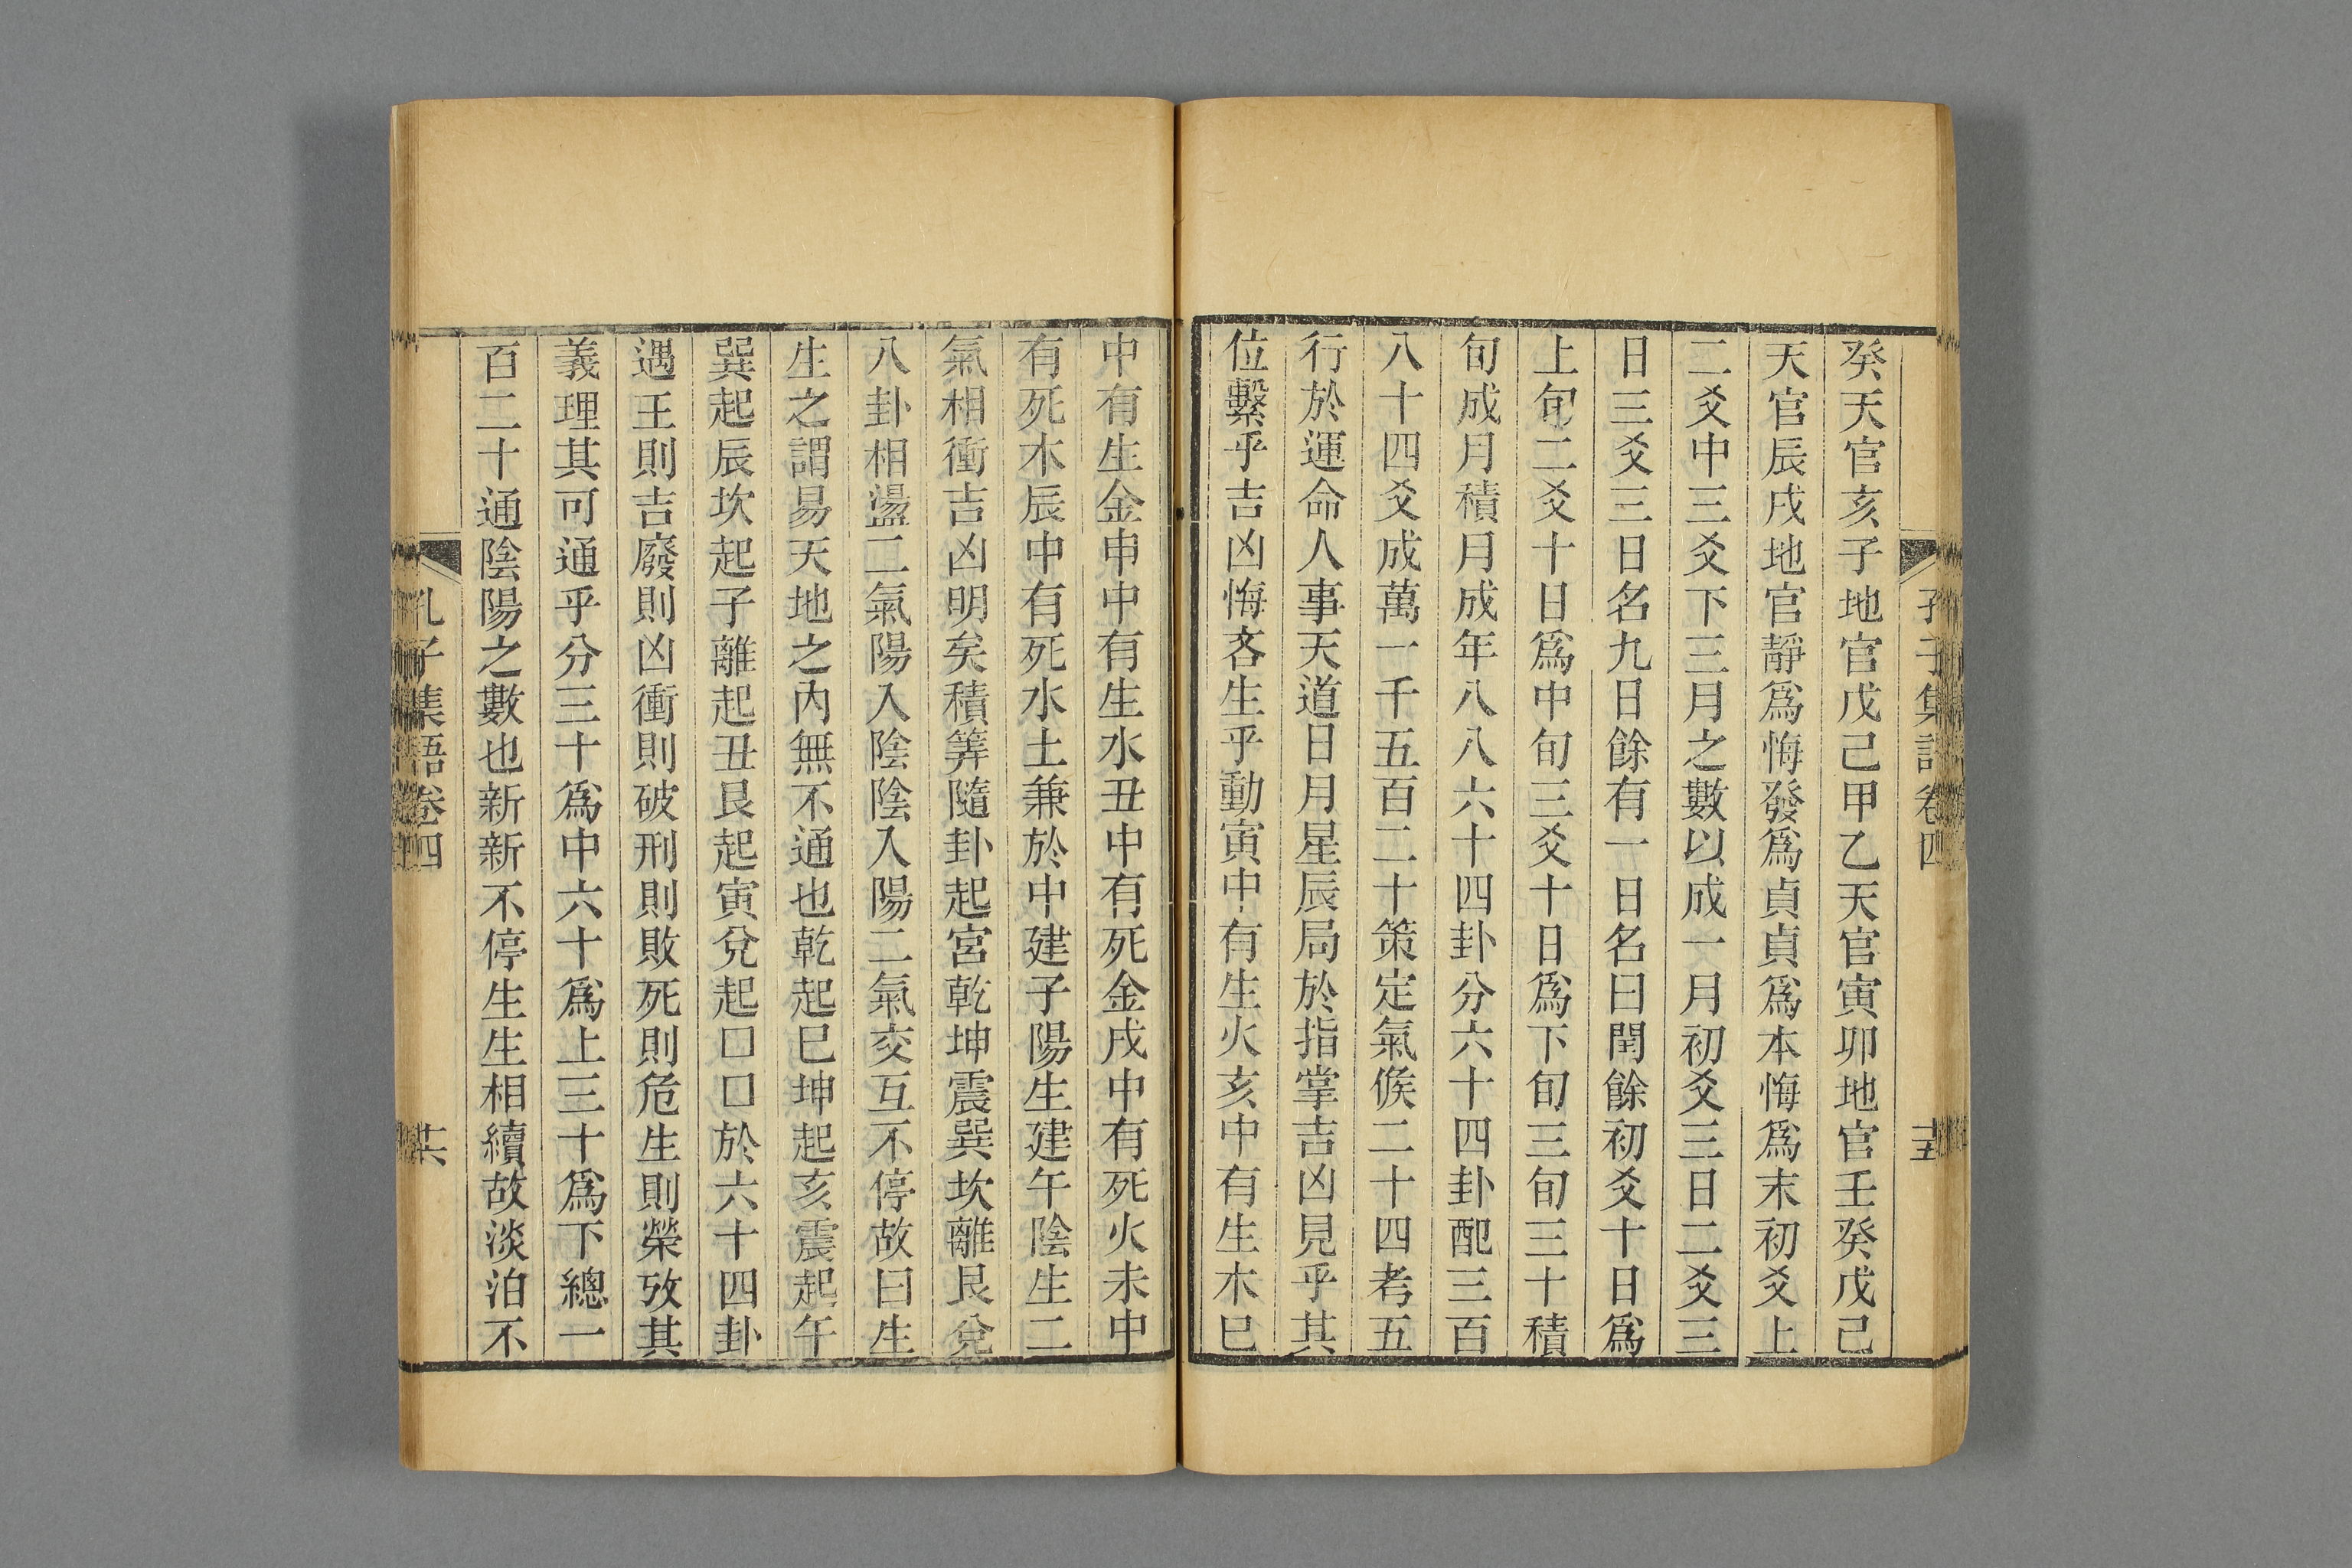 孔子集語卷四
癸天官亥子地官戊己甲乙天官寅卯地官壬癸戊己
天官辰戌地官靜爲悔發爲貞貞爲本悔爲末初爻上
二爻中三爻下三月之數以成一月初爻三日二爻三
日三爻三日名九日餘有一日名曰閏餘初爻十日爲
上旬二爻十日爲中旬三爻十日爲下旬三旬三十積
旬成月積月成年八八六十四卦分六十四卦配三百
八十四爻成萬一千五百二十策定氣候二十四考五
行於運命人事天道日月星辰局於指掌吉凶見乎其
位繫乎吉凶悔吝生乎動寅中有生火亥中有生木巳
中有生金申中有生水丑中有死金戌中有死火未中
有死木辰中有死水土兼於中建子陽生建午陰生二
氣相衝吉凶明矣積筭隨卦起宮乾坤震巽坎離艮兌
八卦相盪二氣陽入陰陰入陽二氣交互不停故曰生
生之謂易天地之內無不通也乾起巳坤起亥震起午
巽起辰坎起子離起丑艮起寅兌起口口於六十四卦
遇王則吉廢則凶衝則破刑則敗死則危生則榮攷其
義理其可通乎分三十爲中六十爲上三十爲下總一
百二十通陰陽之數也新新不停生生相續故淡泊不
孔子集語卷四